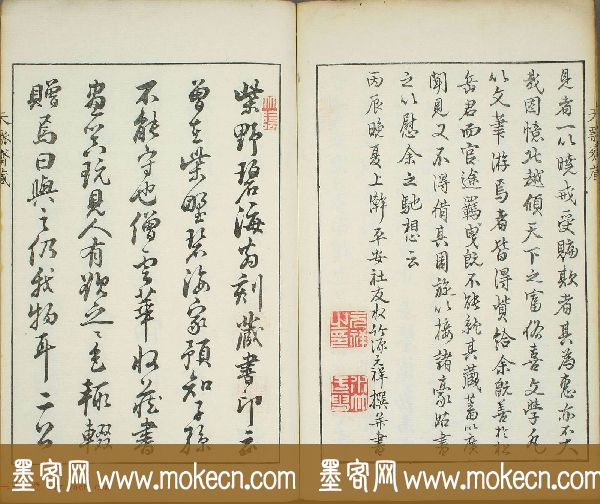 見者一以曉戒受贓欺者其為惠亦不大
哉因憶北越傾天下之富侈喜文學凡
以文筆游焉者皆得贊給余既善於松
岳君而官途羈曳既不能就其藏蓄以廣
聞見又不得借其周旋以接諸豪始書
之以慰余之馳想云
丙辰晚夏上澣平安社友
撰并書
柴野碧海蜀刻藏書印云
曾在柴野碧海家預知子孫
不能守也僧雲華收藏書
畫笑玩見人有欲之之色輒輟
贈焉曰與之仍我物耳二公
天
藏
墨客网 www.mokecn.com
墨客网 www.mokecn.com